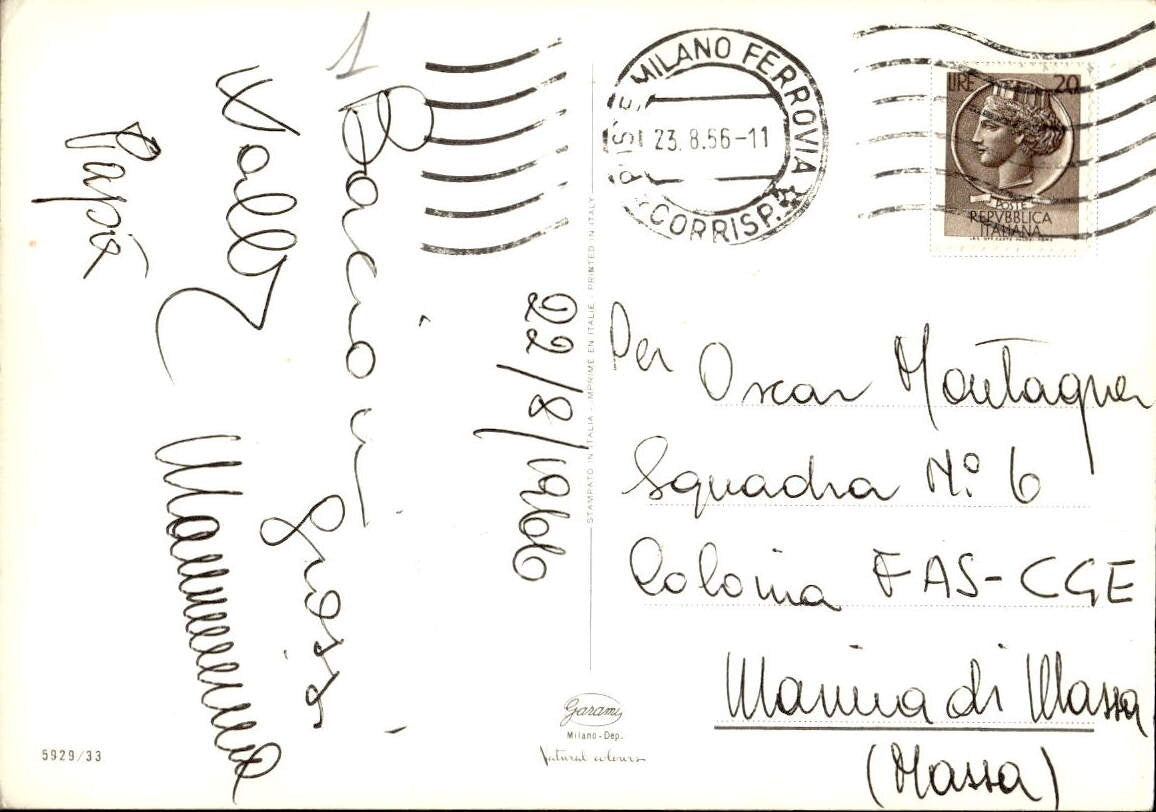 1
Bacioni
grossi
Walle
Mammmmma
Papà
22/8/1966
STAMPATO IN ITALIA - IMPRIME EN ITALIE - PRINTED IN ITALY
MILANO FERROVIA
CORRISP.
23.8.66-11
LIRE 20
POSTE
REPVBBLICA
ITALIANA
Per Oscar Montagner
Squadra N.º 6
Colonia FAS-CGE
Marina di Massa
(Massa)
Garami
Milano-Dep.
Natural colours
5929/33